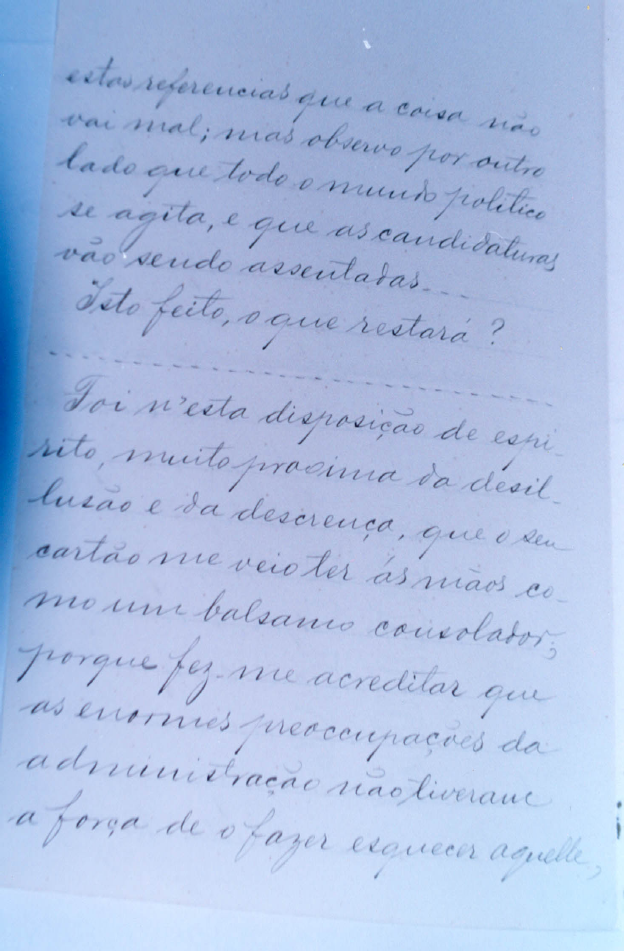 estas referencias que a coisa não
vai mal; mas observo por outro
lado que todo o mundo politico
se agita, e que as candidaturas
vão sendo assentadas....
Isto feito, o que restará?
Foi n'esta disposição de espi-
rito, muito proxima da desil-
lusão e da descrença, que o seu
cartão me veio ter ás mãos co-
mo um balsamo consolador;
porque fez-me acreditar que
as enormes preoccupações da
administração não tiveram
a força de o fazer esquecer aquelle,